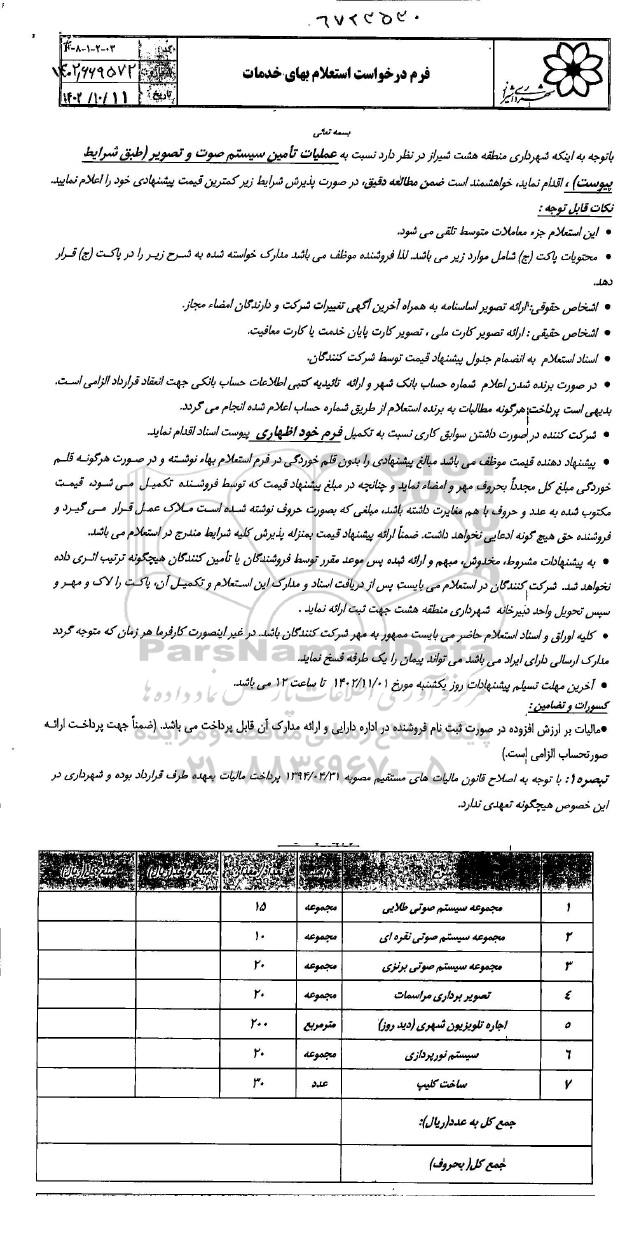 ۶۷۲۲۵۲۰
۲-۰۳-۸-۱
۱۴۰۲/۶۶۹۵۷۲
تاریخ: ۱۴۰۲/۱۰/۱۱
فرم درخواست استعلام بهای خدمات
شهرداری شیراز
بسمه تعالی
باتوجه به اینکه شهرداری منطقه هشت شیراز در نظر دارد نسبت به عملیات تأمین سیستم صوت و تصویر (طبق شرایط
پیوست) ، اقدام نماید، خواهشمند است ضمن مطالعه دقیق، در صورت پذیرش شرایط زیر کمترین قیمت پیشنهادی خود را اعلام نمایید.
نکات قابل توجه :
• این استعلام جزء معاملات متوسط تلقی می شود.
• محتویات پاکت (ج) شامل موارد زیر می باشد. لذا فروشنده موظف می باشد مدارک خواسته شده به شرح زیر را در پاکت (ج) قرار
دهد.
• اشخاص حقوقی: ارائه تصویر اساسنامه به همراه آخرین آگهی تغییرات شرکت و دارندگان امضاء مجاز.
• اشخاص حقیقی : ارائه تصویر کارت ملی ، تصویر کارت پایان خدمت یا کارت معافیت.
• اسناد استعلام به انضمام جدول پیشنهاد قیمت توسط شرکت کنندگان.
• در صورت برنده شدن اعلام شماره حساب بانک شهر و ارائه تائیدیه کتبی اطلاعات حساب بانکی جهت انعقاد قرارداد الزامی است.
بدیهی است پرداخت هرگونه مطالبات به برنده استعلام از طریق شماره حساب اعلام شده انجام می گردد.
• شرکت کننده در صورت داشتن سوابق کاری نسبت به تکمیل فرم خود اظهاری پیوست اسناد اقدام نماید.
• پیشنهاد دهنده قیمت موظف می باشد مبالغ پیشنهادی را بدون قلم خوردگی در فرم استعلام بهاء نوشته و در صورت هرگونه قلم
خوردگی مبلغ کل مجدداً بحروف مهر و امضاء نماید و چنانچه در مبلغ پیشنهاد قیمت که توسط فروشنده تکمیل می شود، قیمت
مکتوب شده به عدد و حروف با هم مغایرت داشته باشد، مبلغی که بصورت حروف نوشته شده است ملاک عمل قرار می گیرد و
فروشنده حق هیچ گونه ادعایی نخواهد داشت. ضمناً ارائه پیشنهاد قیمت بمنزله پذیرش کلیه شرایط مندرج در استعلام می باشد.
• به پیشنهادات مشروط، مخدوش، مبهم و ارائه شده پس موعد مقرر توسط فروشندگان یا تأمین کنندگان هیچگونه ترتیب اثری داده
نخواهد شد. شرکت کنندگان در استعلام می بایست پس از دریافت اسناد و مدارک این استعلام و تکمیل آن، پاکت را لاک و مهر و
سپس تحویل واحد دبیرخانه شهرداری منطقه هشت جهت ثبت ارائه نماید .
• کلیه اوراق و اسناد استعلام حاضر می بایست ممهور به مهر شرکت کنندگان باشد. در غیر اینصورت کارفرما هر زمان که متوجه گردد
مدارک ارسالی دارای ایراد می باشد می تواند پیمان را یک طرفه فسخ نماید.
• آخرین مهلت تسیلم پیشنهادات روز یکشنبه مورخ ۱۴۰۲/۱۱/۰۱ تا ساعت ۱۲ می باشد.
کسورات و تضامین :
•مالیات بر ارزش افزوده در صورت ثبت نام فروشنده در اداره دارایی و ارائه مدارک آن قابل پرداخت می باشد. (ضمناً جهت پرداخت ارائه
صورتحساب الزامی است.)
تبصره۱: با توجه به اصلاح قانون مالیات های مستقیم مصوبه ۱۳۹۴/۰۴/۳۱ پرداخت مالیات بعهده طرف قرارداد بوده و شهرداری در
این خصوص هیچگونه تعهدی ندارد.
ParsNamadData
مرکز فرآوری اطلاعات پارس نماد داده ها
پایگاه اطلاع رسانی مناقصه و مزایده
۰۲۱-۸۸۳۴۹۶۷۰-۵
۱ مجموعه سیستم صوتی طلایی مجموعه ۱۵
۲ مجموعه سیستم صوتی نقره ای مجموعه ۱۰
۳ مجموعه سیستم صوتی برنزی مجموعه ۲۰
٤ تصویر برداری مراسمات مجموعه ۲۰
۵ اجاره تلویزیون شهری (دید روز) مترمربع ۲۰۰
۶ سیستم نورپردازی مجموعه ۲۰
۷ ساخت کلیپ عدد ۳۰
جمع کل به عدد(ریال):
جمع کل( بحروف)